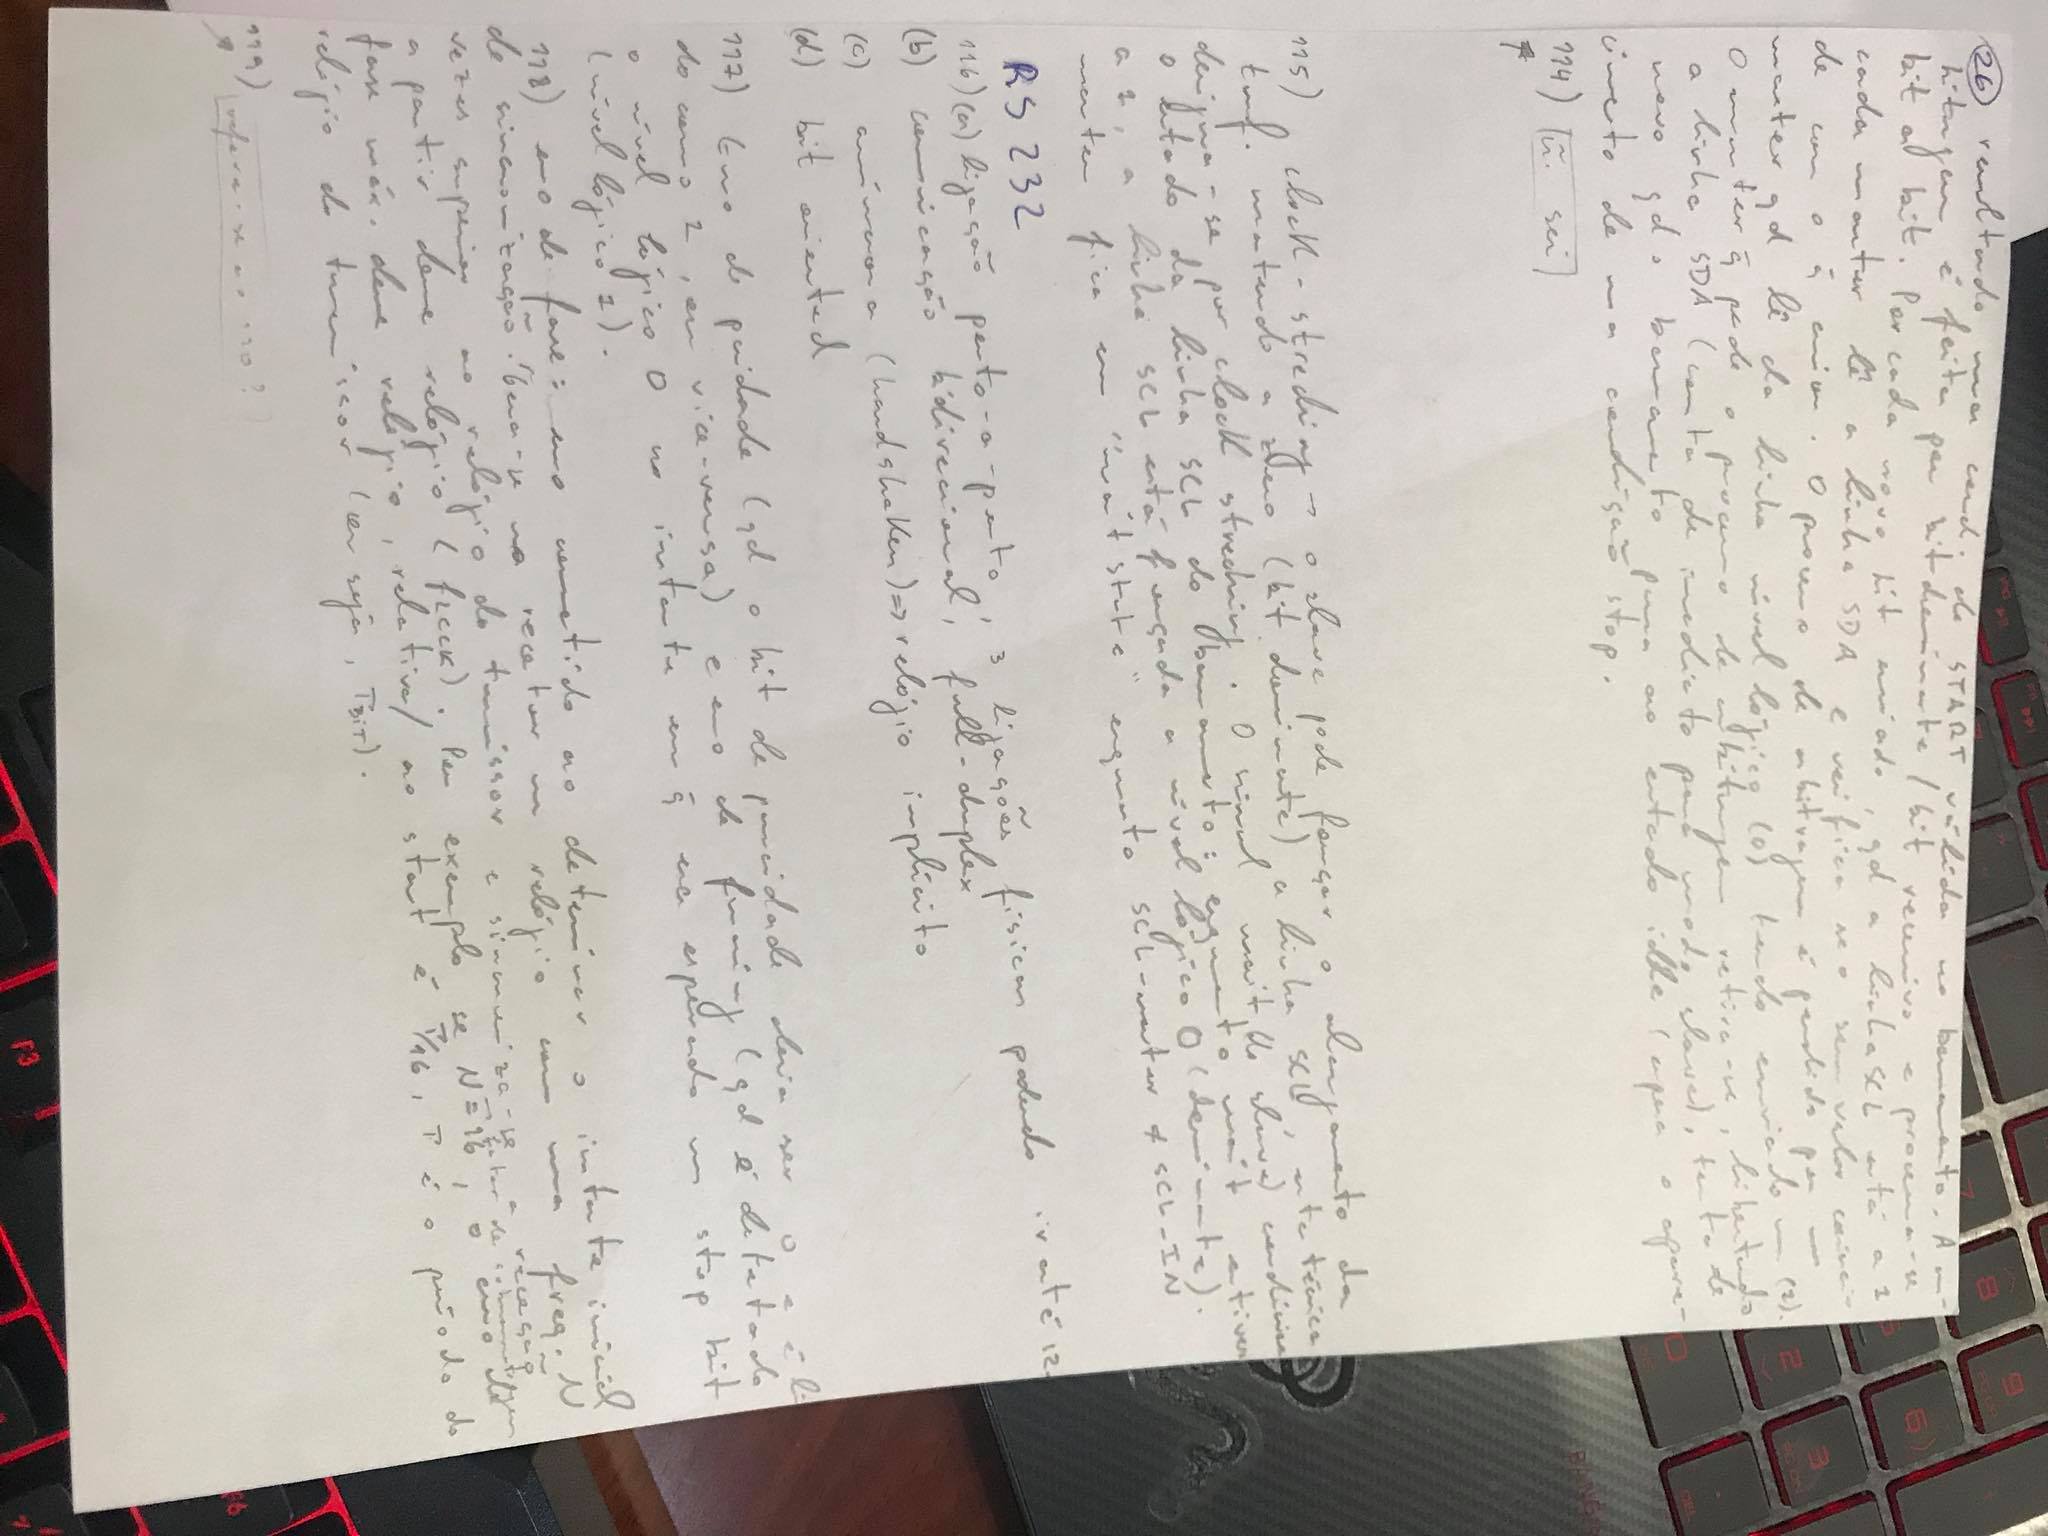 26 resultado uma cond. de START válida no barramento. A ar-
bitragem é feita por bit dominante / bit recessivo e processa-se
bit a bit. Por cada novo bit enviado, qd a linha SCL está a 1
cada master lê a linha SDA e verifica se o seu valor coinci-
de com o q̃ enviou. O processo de arbitragem é perdido por um
master qd lê da linha nível lógico (0) tendo enviado um (1).
O master q̃ perde o processo de arbitragem retira-se, libertando
a linha SDA (comuta de imediato para modo slave), tenta de
novo qd o barramento passa ao estado idle (após o apare-
cimento de uma condição stop.
114) ñ. sei
115) clock-streching → o slave pode forçar o alargamento da
tranf. matendo a zero (bit dominante) a linha SCL, esta técnica
designa-se por clock streching. O sinal wait (do slave) condiciona
o estado da linha SCL do barramento: enquanto wait estiver
a 1, a linha SCL está forçada a nível lógico 0 (dominante).
master fica em "wait state" enquanto SCL-master ≠ SCL-IN
RS 232
116) (a) ligação ponto-a-ponto, 3 ligações físicas podendo ir até 12.
(b) comunicação bidirecional, full-duplex
(c) assíncrona (handshaken) => relógio implícito
(d) bit oriented
117) Erro de paridade (qd o bit de parcidade devia ser 0 e é li-
do como 1, ou vice-versa) e erro de framing (qd é detetado
o nível lógico 0 no instante em q̃ era esperado um stop bit
(nível lógico 1).
118) erro de fase: erro cometido ao determinar o instante inicial
de sincronização. Gera-se no recetor um relógio com uma freq. N
vezes superior ao relógio do transmissor e sincroniza-se a receção
a partir desse relógio (fLCLK). Por exemplo se N=16, o erro de
fator de sobreamostragem
fase máx. desse relógio, relativa/ ao start é T/16, T é o período do
relógio do transmissor (ou seja, TBIT).
119) refere-se ao 110?
BANG
F3
F6
DEL